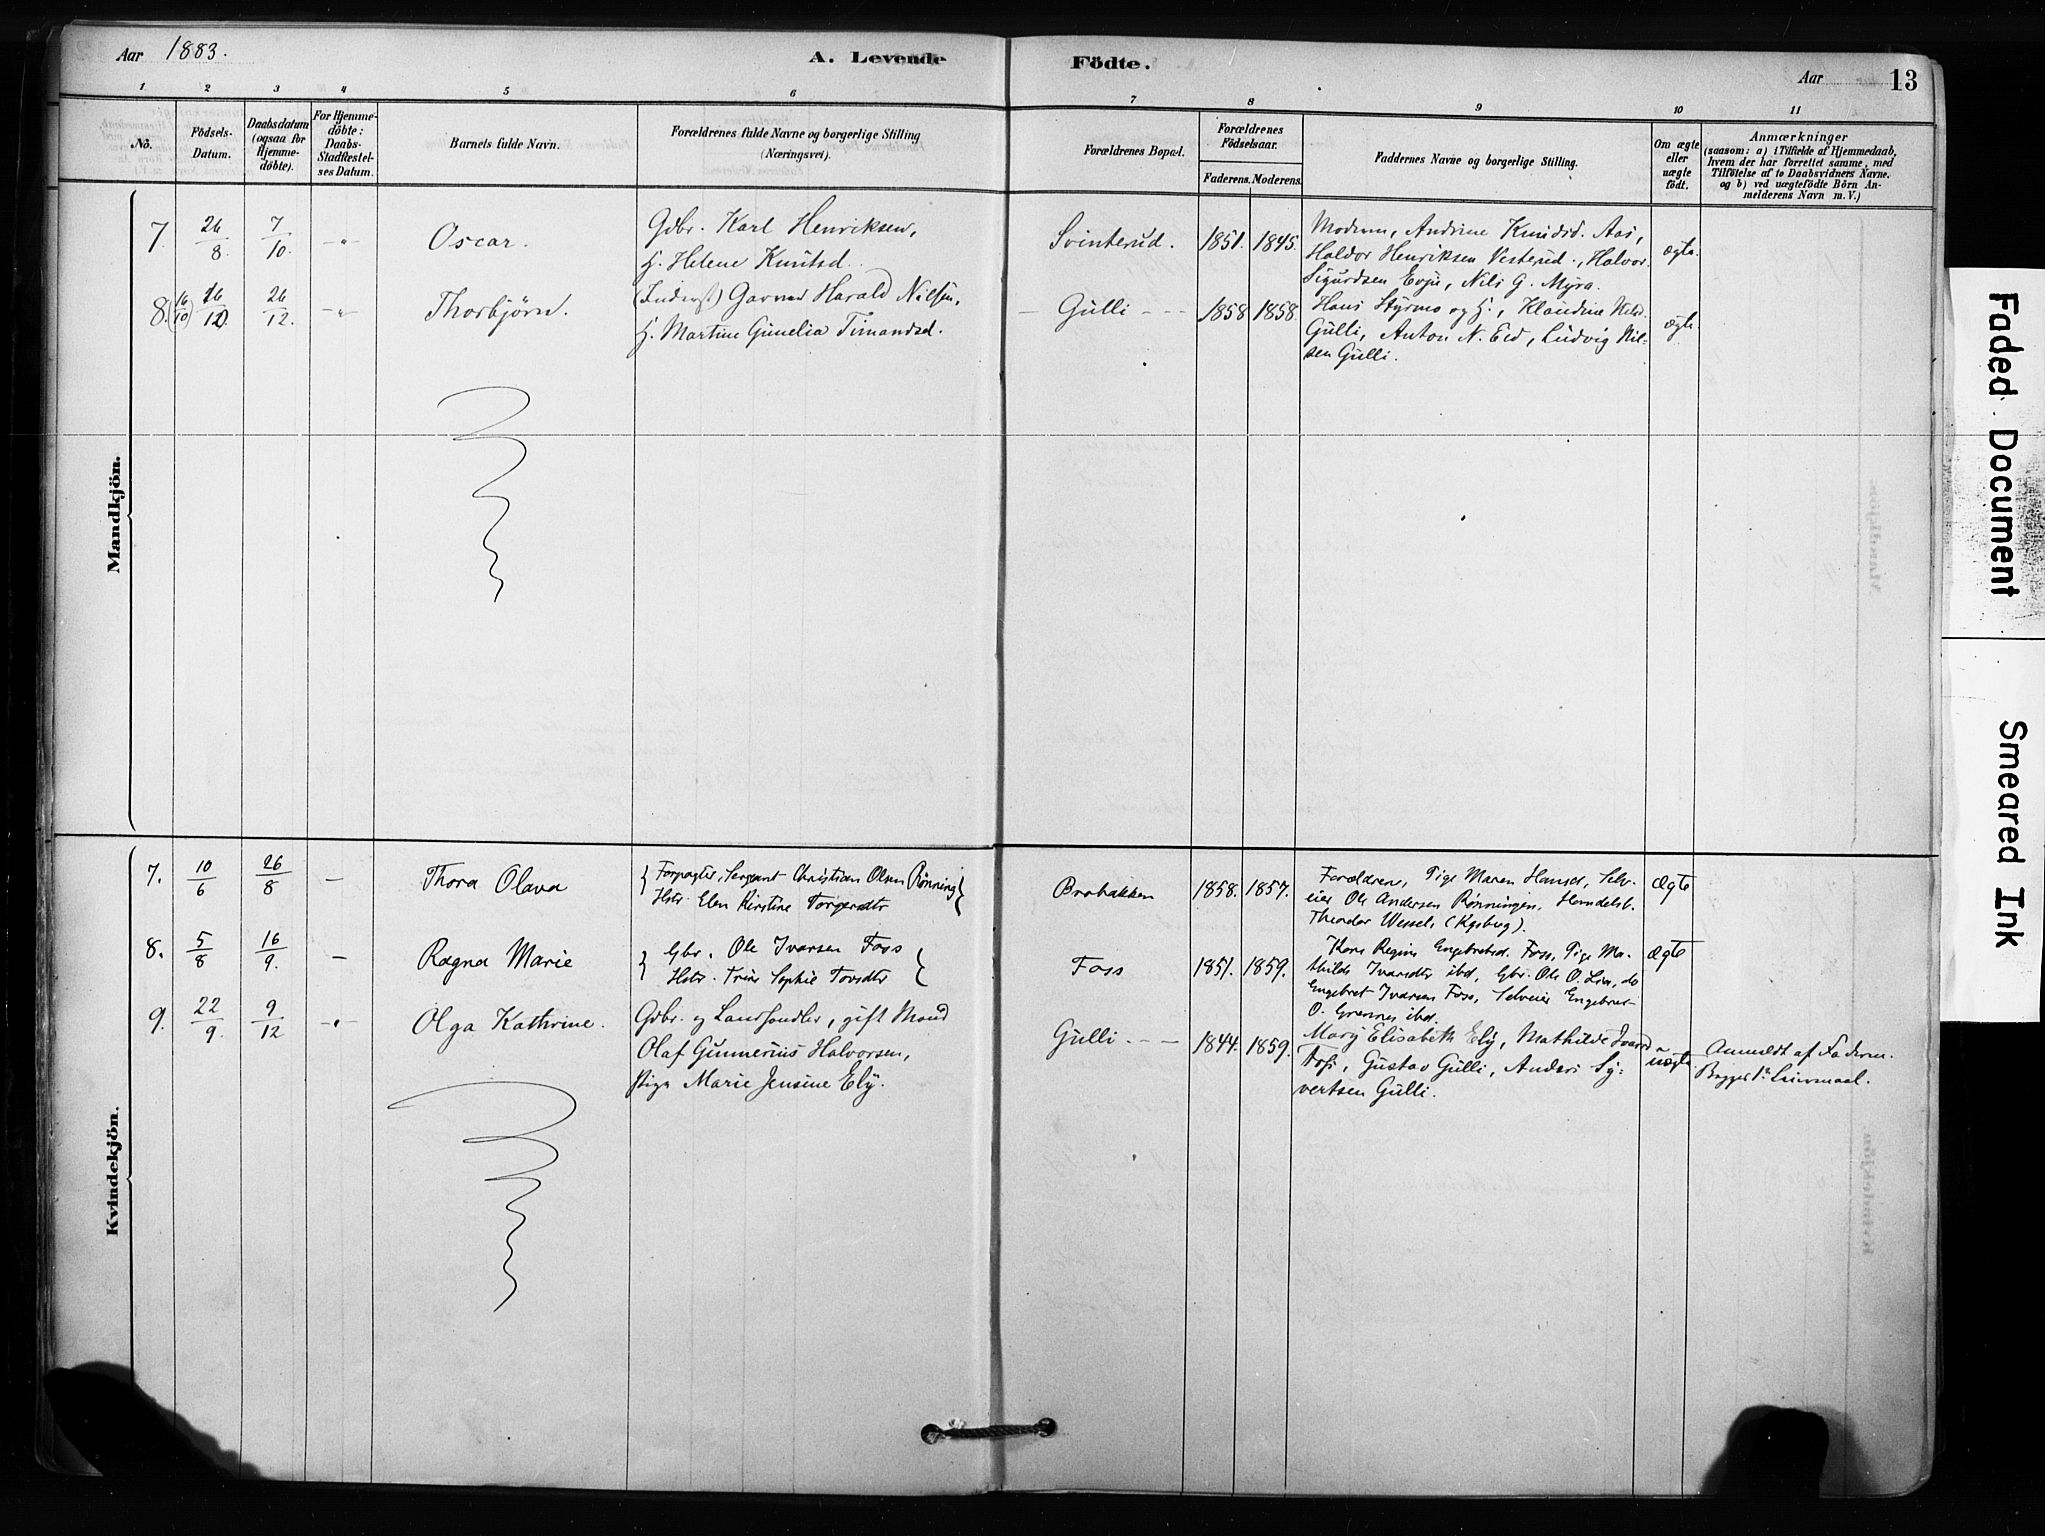 Aar 1883. A. Levende Födte. Aar 13
1 2 3 4 5 6 7 8 9 10 11
No. Födsels-Datum. Daabsdatum (ogsaa for Hjemme-döbte). For Hjemme-döbte: Daabs-Stadfæstel-ses Datum. Barnets fulde Navn. Forældrenes fulde Navne og borgerlige Stilling (Næringsvei). Forældrenes Bopæl. Forældrenes Födselsaar. Faderens. Moderens. Faddernes Navne og borgerlige Stilling. Om ægte eller uægte födt. Anmærkninger
(saasom: a) i Tilfælde af Hjemmedaab,
hvem der har forrettet samme, med
Tilföielse af to Daabsvidners Navne.
og b) ved uægtefödte Börn An-
melderens Navn m. V.)
Mandkjön.
7. 26/8. 7/10. -"- Oscar. Gdbr. Karl Henriksen,
H. Helene Knutsd.
Svinterud. 1851. 1845.
Modrum, Andrine Knudsd. Aas,
Haldor Henriksen Vesterud, Halvor
Sigurdsen Evju, Nils G. Myra.
ægte.
8. (16/10) 16/12. 26/12. -"- Thorbjørn. (Inderst) Garver Harald Nilsen,
H. Martine Gunelia Timandsd.
- Gulli - - - 1858 1858
Hans Styrmo og H., Klaudine Nilsd.
Gulli, Anton N. Eid, Ludvig Nil-
sen Gulli.
ægte.
Kvindekjön.
7. 10/6 26/8 - Thora Olava Forpagter, Sergeant Christian Olsen Rønning
Hstr. Elen Kirstine Torgersdtr
Brobakken 1858. 1857.
Forældrene, Pige Maren Hansd, Selv-
eier Ole Andersen Rønningen, Handelsb.
Theodor Wessel, (Kgsberg).
Ægte
8. 5/8 16/9. - Ragna Marie Gbr. Ole Ivarsen Foss
Hstr. Trine Sophie Tovsdtr
Foss 1851. 1859.
Kare Regine Engebretsd. Foss, Pige Ma-
thilde Ivarsdtr ibd, Gbr. Ole O. Lien, do
Engebret Ivarsen Foss, Selveier Engebret
O. Grennes ibd.
Ægte
9. 22/9. 9/12 -"- Olga Kathrine. Gdbr. og Landhandler, gift Mand
Olaf Gunnerius Halvorsen,
Pige Marie Jensine Ely.
Gulli - - - 1844. 1859.
Mary Elisabeth Ely, Mathilde Ivarsd
Foss, Gustav Gulli, Anders Sy-
vertsen Gulli.
uægte.
Anmeldt af Faderen.
Begges 1ste Leiermaal.
Faded Document
Smeared Ink